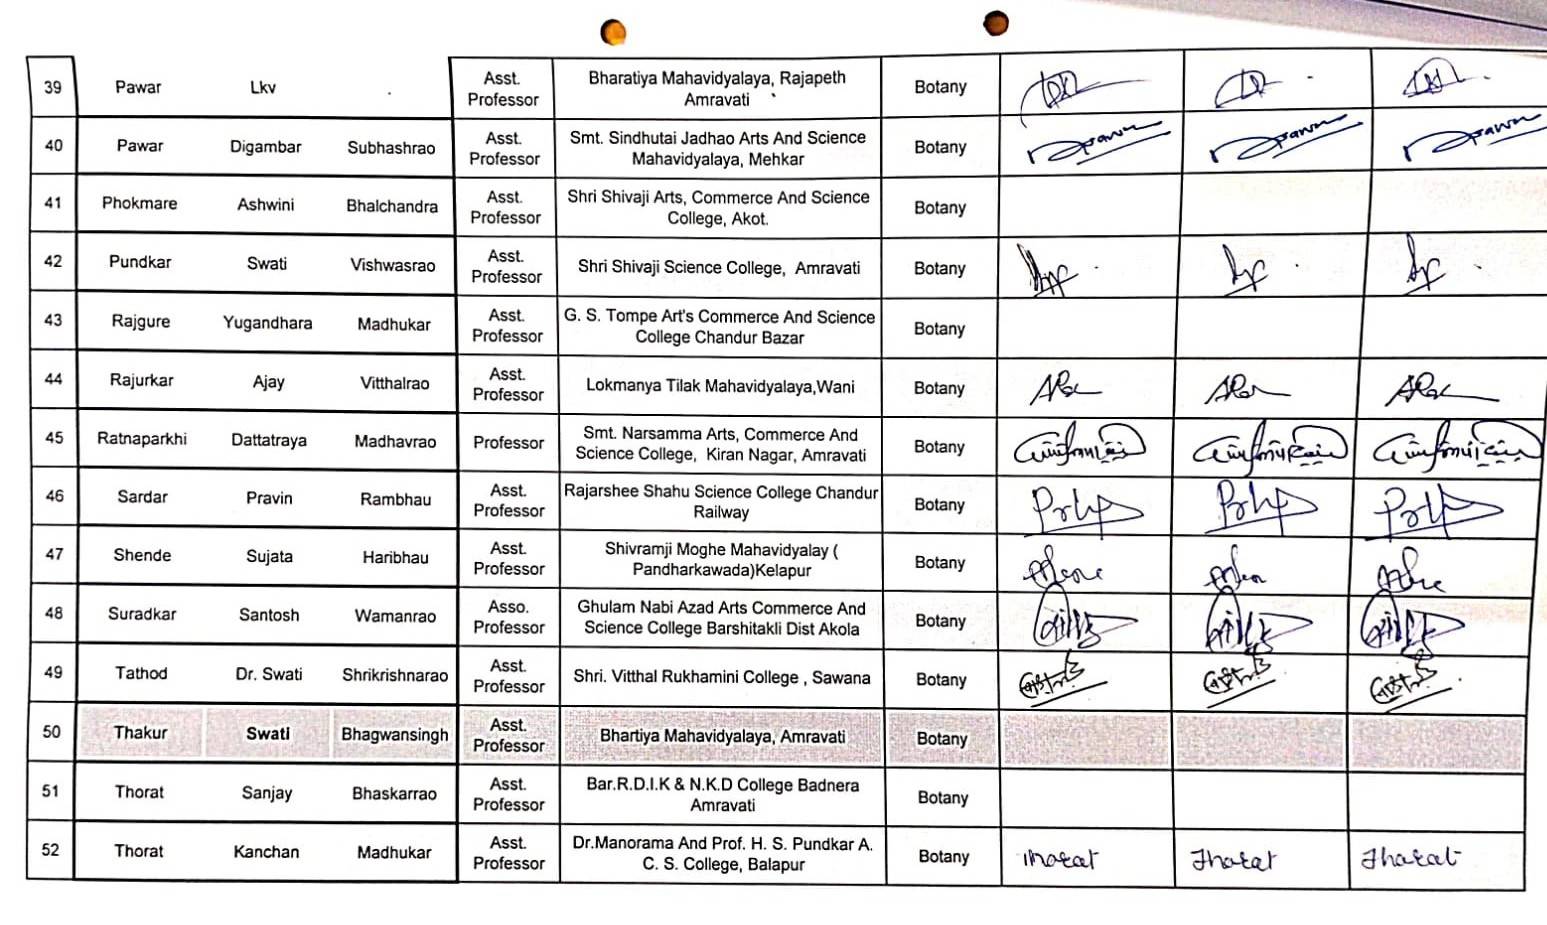 39 Pawar Lkv Asst. Professor Bharatiya Mahavidyalaya, Rajapeth Amravati Botany
40 Pawar Digambar Subhashrao Asst. Professor Smt. Sindhutai Jadhao Arts And Science Mahavidyalaya, Mehkar Botany
41 Phokmare Ashwini Bhalchandra Asst. Professor Shri Shivaji Arts, Commerce And Science College, Akot. Botany
42 Pundkar Swati Vishwasrao Asst. Professor Shri Shivaji Science College, Amravati Botany
43 Rajgure Yugandhara Madhukar Asst. Professor G. S. Tompe Art's Commerce And Science College Chandur Bazar Botany
44 Rajurkar Ajay Vitthalrao Asst. Professor Lokmanya Tilak Mahavidyalaya,Wani Botany
45 Ratnaparkhi Dattatraya Madhavrao Professor Smt. Narsamma Arts, Commerce And Science College, Kiran Nagar, Amravati Botany
46 Sardar Pravin Rambhau Asst. Professor Rajarshee Shahu Science College Chandur Railway Botany
47 Shende Sujata Haribhau Asst. Professor Shivramji Moghe Mahavidyalay ( Pandharkawada)Kelapur Botany
48 Suradkar Santosh Wamanrao Asso. Professor Ghulam Nabi Azad Arts Commerce And Science College Barshitakli Dist Akola Botany
49 Tathod Dr. Swati Shrikrishnarao Asst. Professor Shri. Vitthal Rukhamini College , Sawana Botany
50 Thakur Swati Bhagwansingh Asst. Professor Bhartiya Mahavidyalaya, Amravati Botany
51 Thorat Sanjay Bhaskarrao Asst. Professor Bar.R.D.I.K & N.K.D College Badnera Amravati Botany
52 Thorat Kanchan Madhukar Asst. Professor Dr.Manorama And Prof. H. S. Pundkar A. C. S. College, Balapur Botany Thorat Thorat Thorat